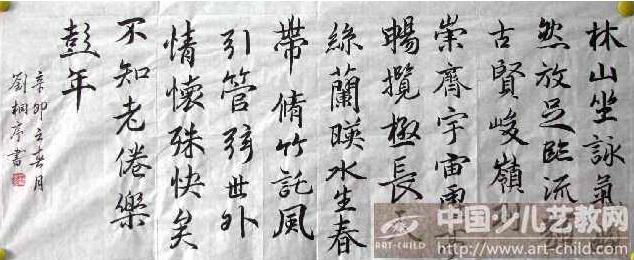 林山坐詠氣
然放足臨流
古賢峻嶺
崇齊宇宙
暢攬極長天
絲蘭暎水生春
帶脩竹託風
引管弦世外
情懷殊快矣
不知老倦樂
彭年
辛卯立春月
劉桐書
中国·少儿艺教网
ART-CHILD
http://www.art-child.com